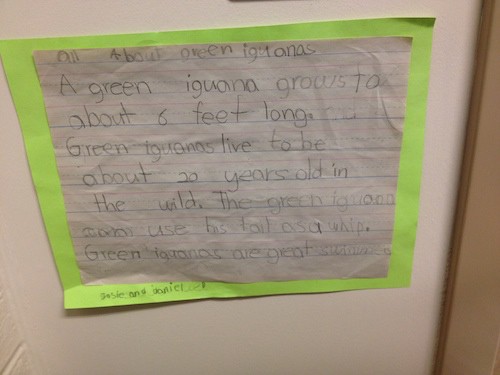 All About green iguanas
A green iguana grows to
about 6 feet long.
Green iguanas live to be
about 20 years old in
the wild. The green iguana
use his tail as a whip.
Green iguanas are great
Josie and Daniel